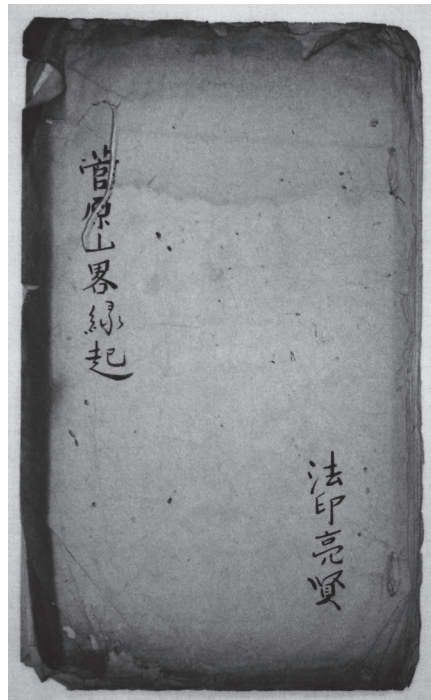 菅原山畧縁起
法印亮賢